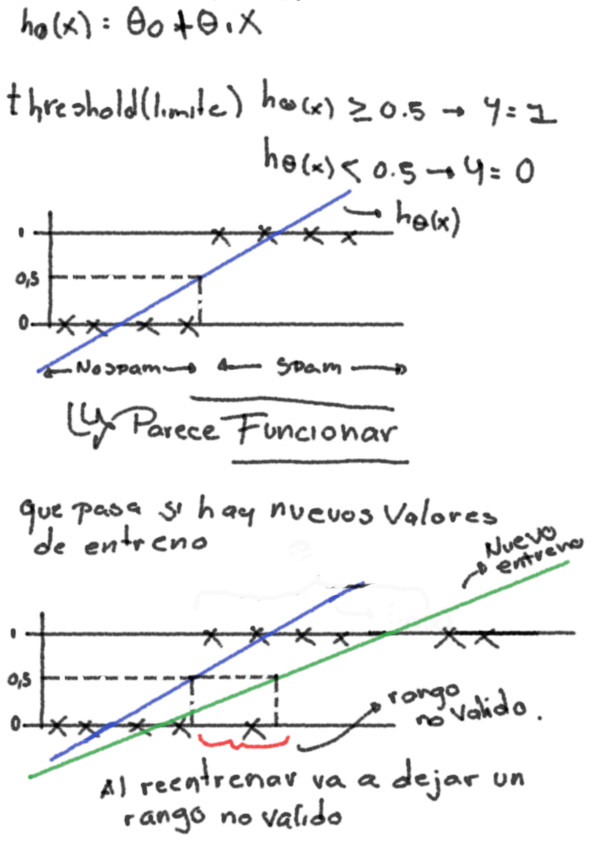 hθ(x) = θ0 + θ1X
threshold(limite) hθ(x) ≥ 0.5 → Y = 1
hθ(x) < 0.5 → Y = 0
hθ(x)
1
0,5
0
No spam
Spam
Parece Funcionar
que pasa si hay nuevos Valores
de entreno
Nuevo
entreno
1
0,5
0
rango
no valido.
Al reentrenar va a dejar un
rango no valido